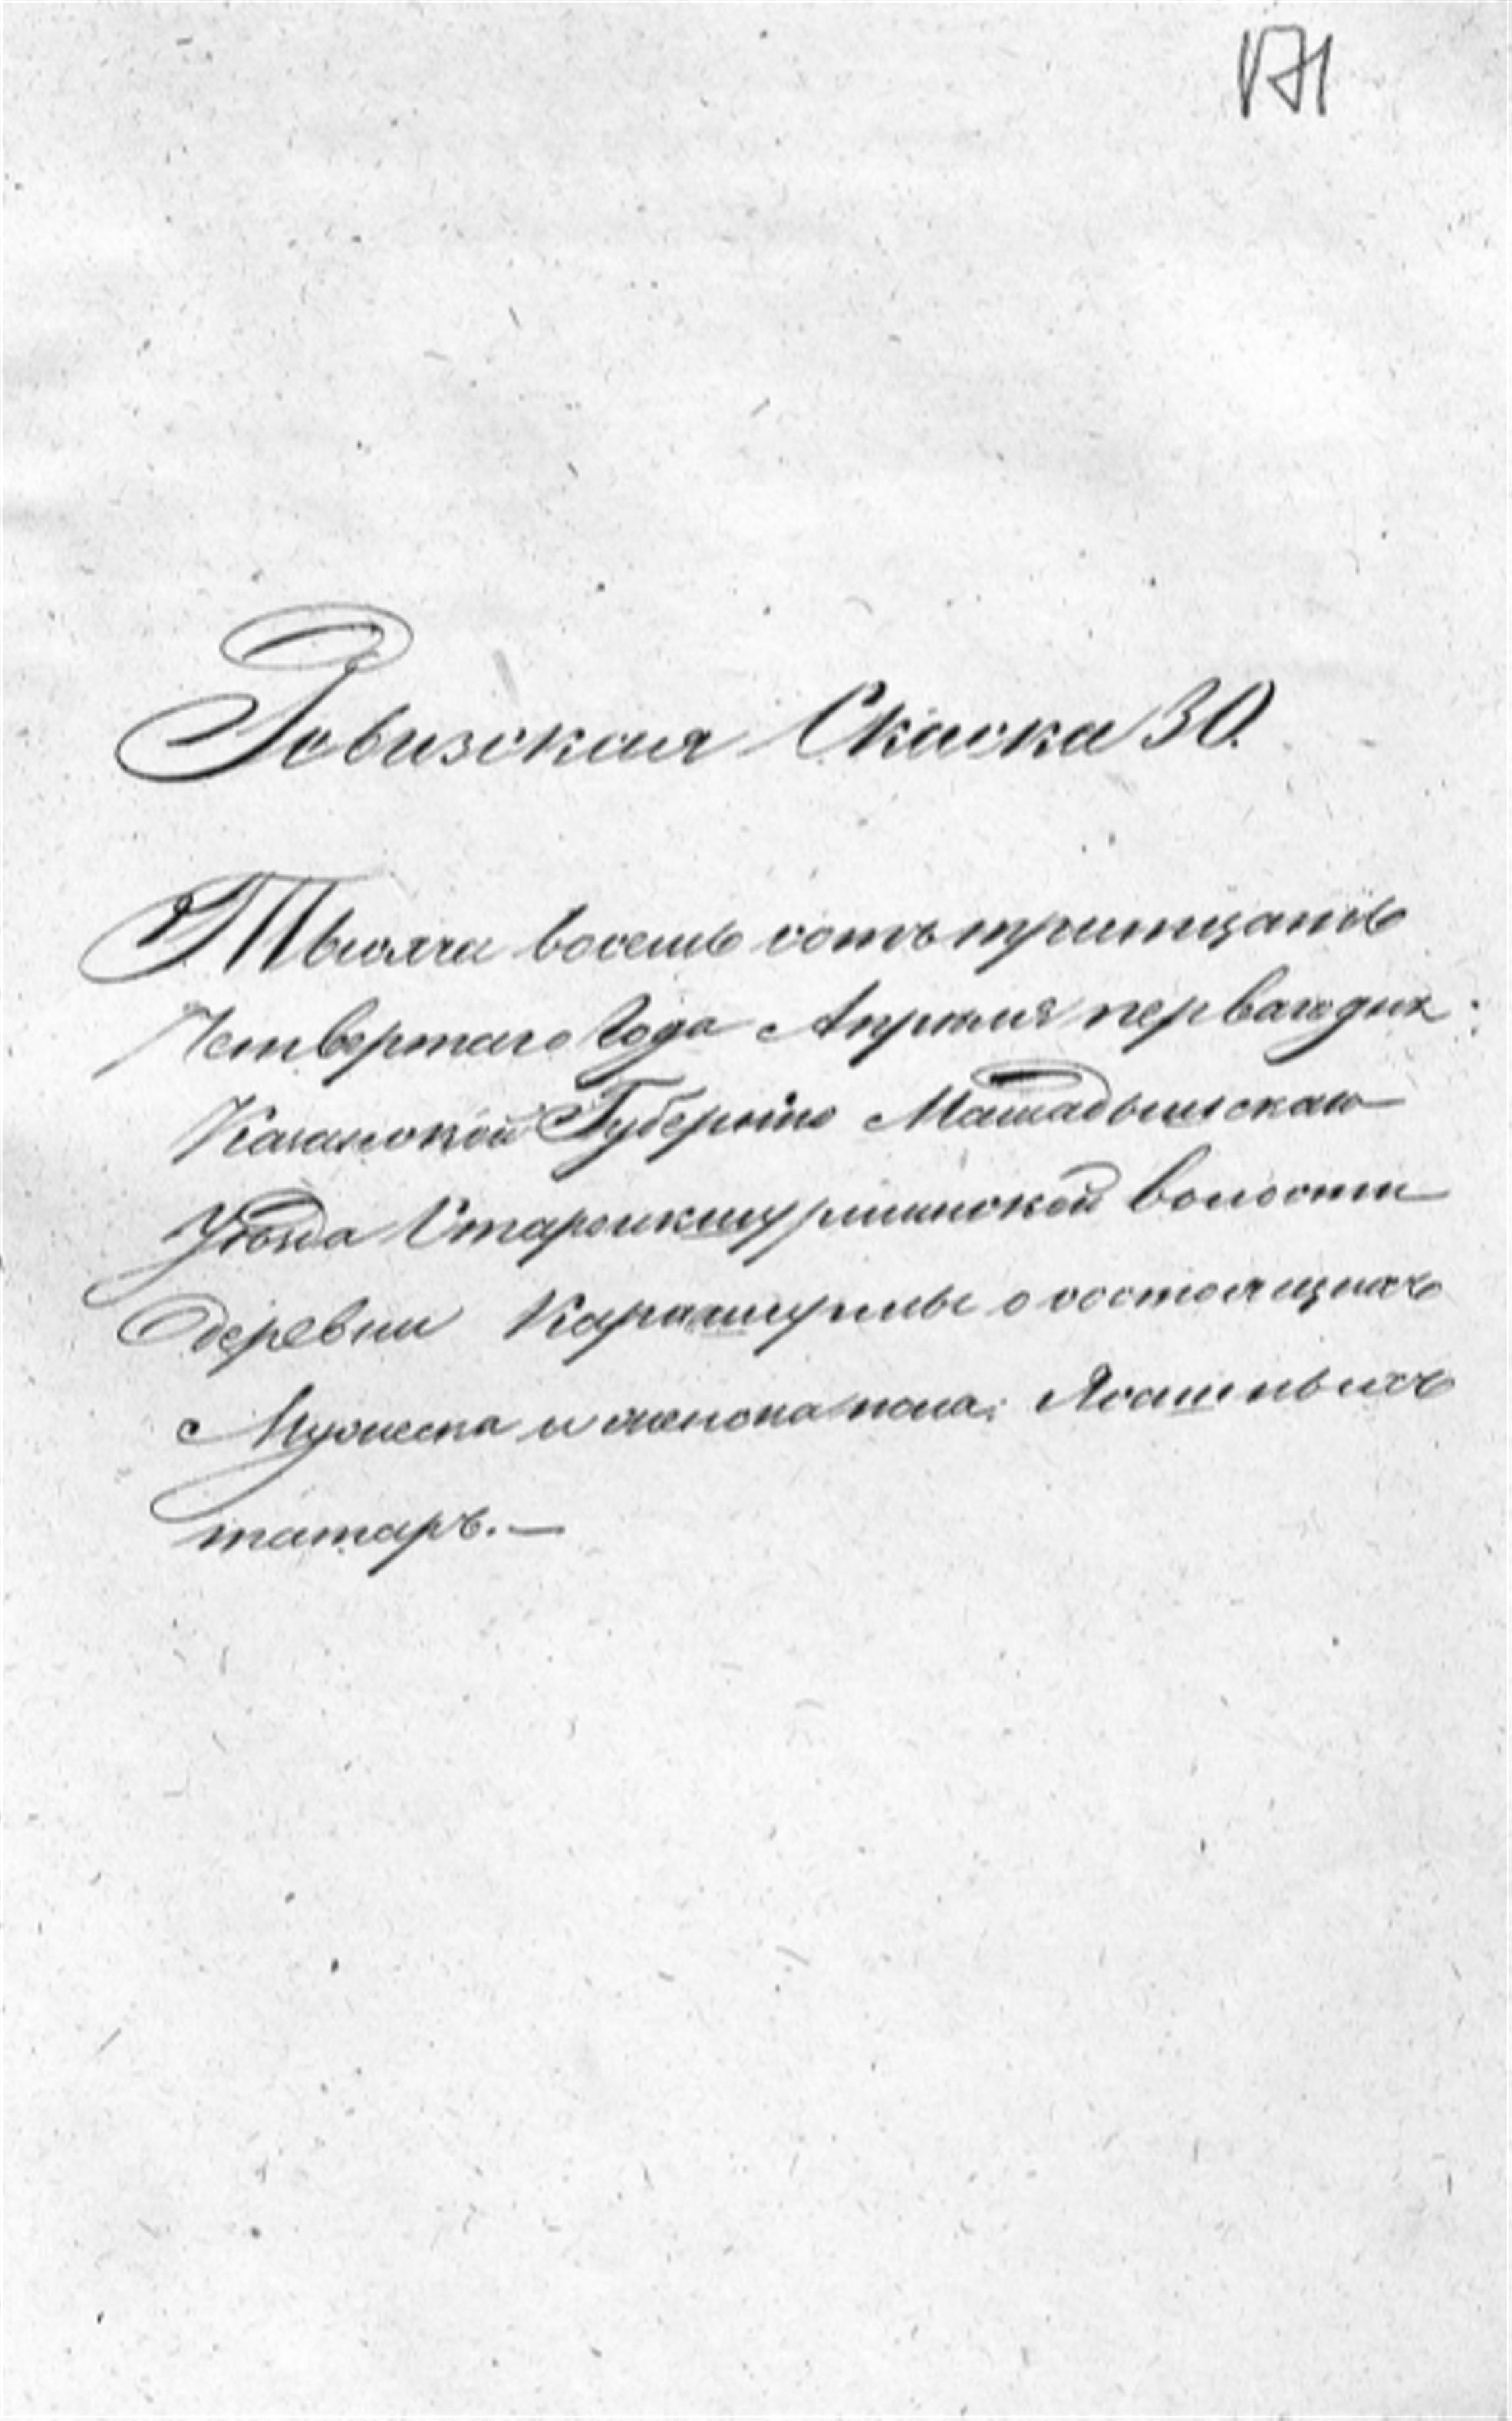 171
Ревизская Скаска 30.
Тысяча восемь сотъ тритцать
Четвертаго Года Апреля перваго дня
Казанской Губерніи Мамадышскаго
Уѣзда Староикшурминской волости
деревни Карашурмы о состоящихъ
Мужеска и женска пола. Ясашныхъ
татаръ. —